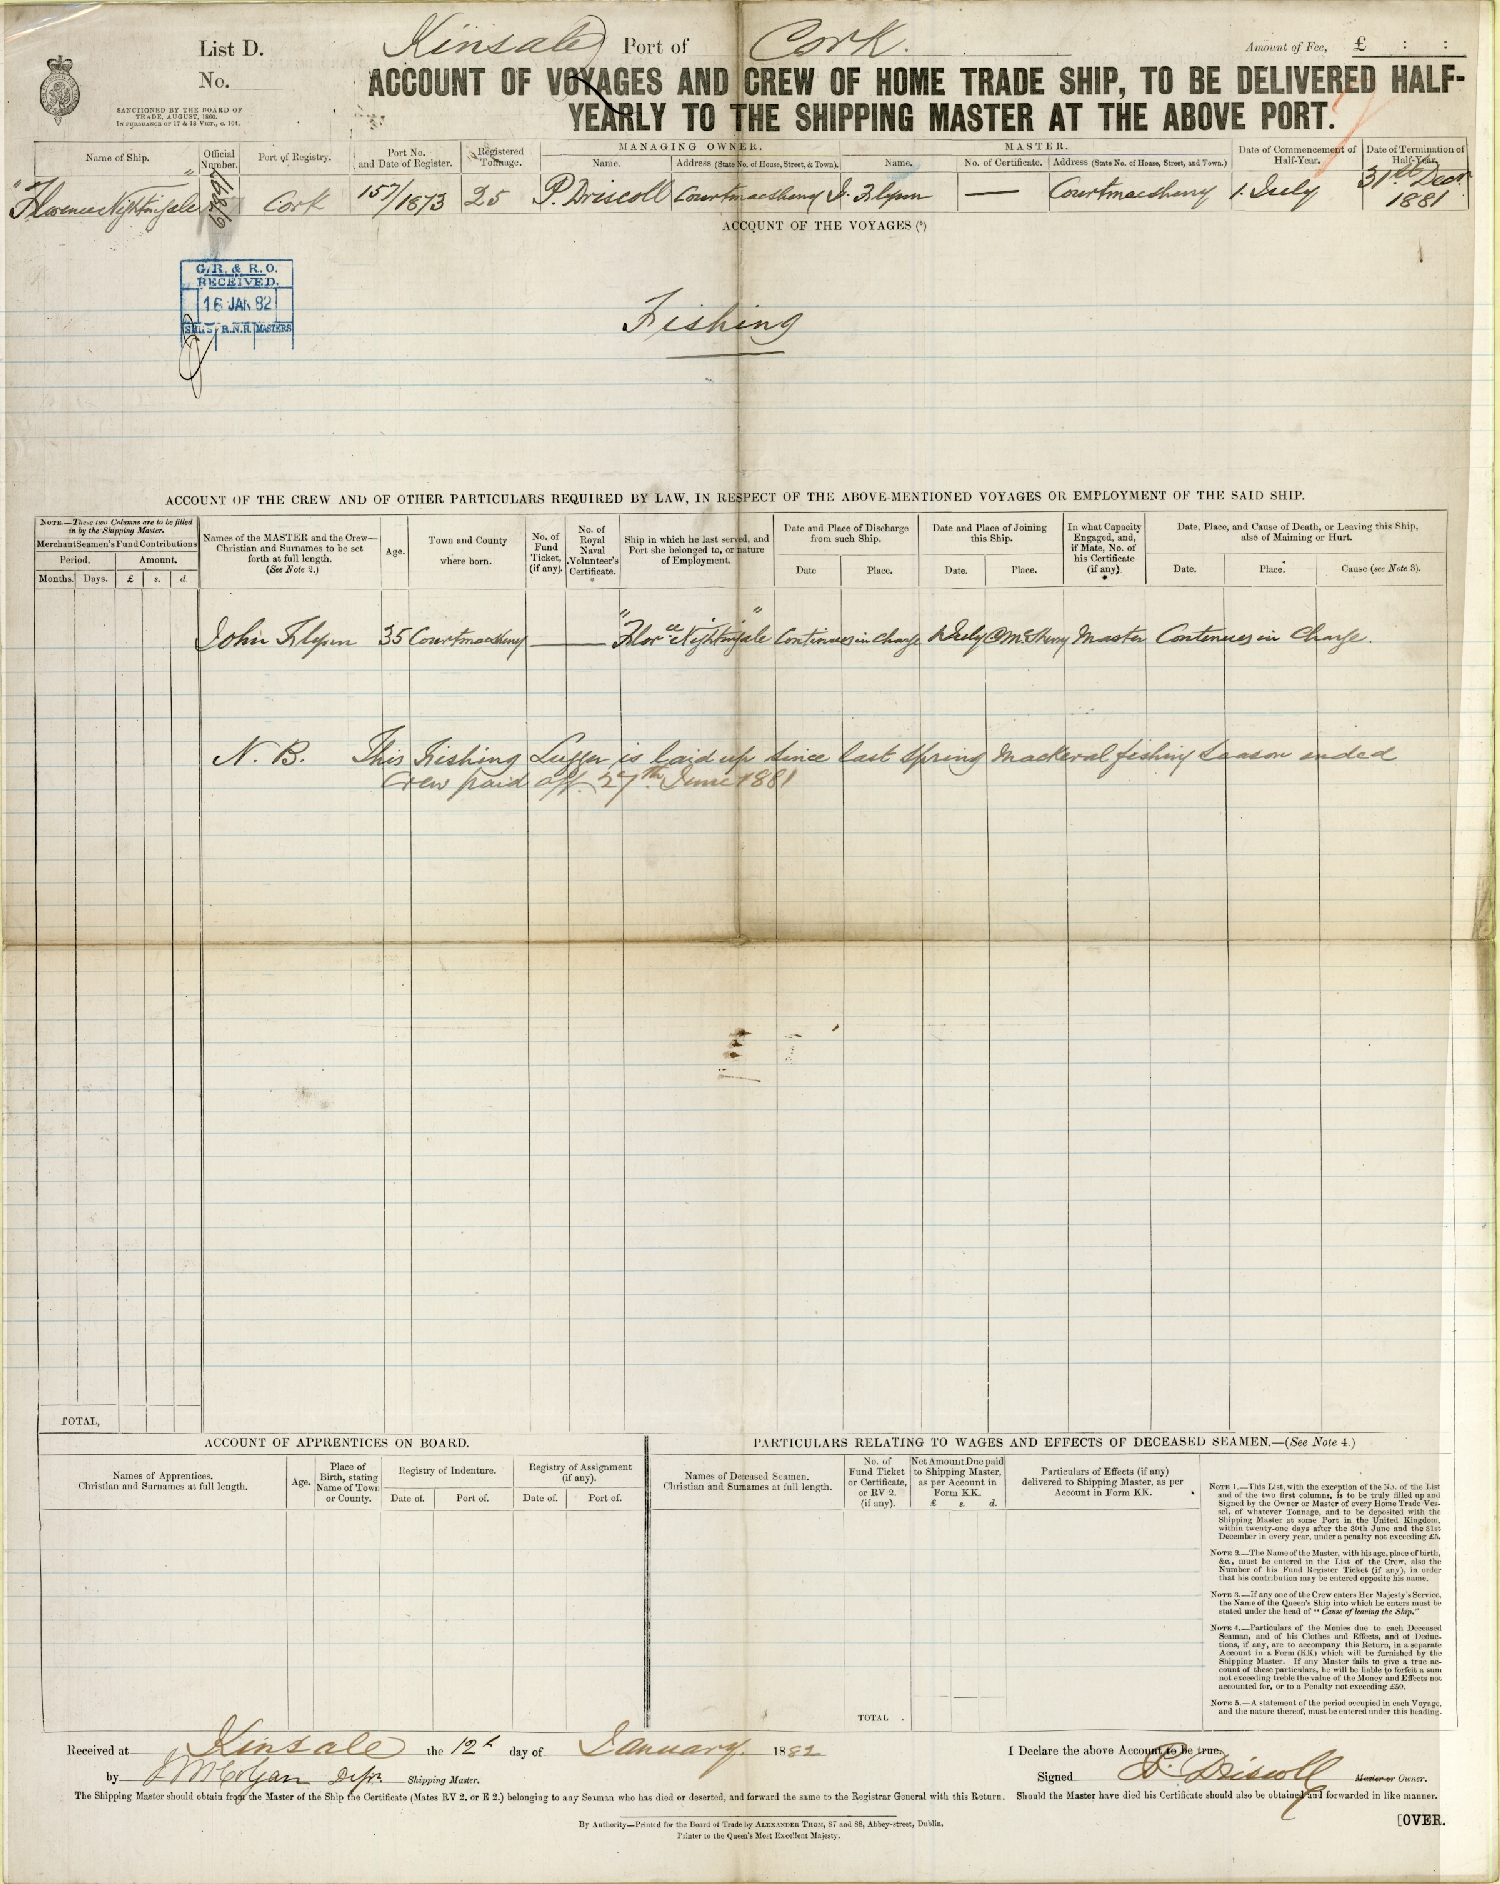 List D.
Kinsale Port of Cork.
Amount of Fee, £ : :
No.
SANCTIONED BY THE BOARD OF
TRADE, AUGUST, 1860.
IN PURSUANCE OF 17 & 18 VICT., c. 104.
ACCOUNT OF VOYAGES AND CREW OF HOME TRADE SHIP, TO BE DELIVERED HALF-
YEARLY TO THE SHIPPING MASTER AT THE ABOVE PORT.
Name of Ship. Official Number. Port of Registry. Port No. and Date of Register. Registered Tonnage. MANAGING OWNER. MASTER. Date of Commencement of Half-Year. Date of Termination of Half-Year.
Name. Address (State No. of House, Street, & Town). Name. No. of Certificate. Address (State No. of House, Street, and Town.)
"Florence Nightingale" 67897 Cork 157/1873 25 P. Driscoll Courtmacsherry J. Flynn — Courtmacsherry 1. July 31st Decr 1881
ACCOUNT OF THE VOYAGES (5)
G.R. & R.O.
RECEIVED.
16 JAN 82
SHIPS R.N.R MASTERS
Fishing
ACCOUNT OF THE CREW AND OF OTHER PARTICULARS REQUIRED BY LAW, IN RESPECT OF THE ABOVE-MENTIONED VOYAGES OR EMPLOYMENT OF THE SAID SHIP.
NOTE.—These two Columns are to be filled in by the Shipping Master.
Merchant Seamen's Fund Contributions
Period. Amount.
Months. Days. £ s. d.
Names of the MASTER and the Crew—Christian and Surnames to be set forth at full length. (See Note 2.)
Age.
Town and County where born.
No. of Fund Ticket, (if any).
No. of Royal Naval Volunteer's Certificate.
Ship in which he last served, and Port she belonged to, or nature of Employment.
Date and Place of Discharge from such Ship.
Date Place.
Date and Place of Joining this Ship.
Date. Place.
In what Capacity Engaged, and, if Mate, No. of his Certificate (if any).
Date, Place, and Cause of Death, or Leaving this Ship, also of Maiming or Hurt.
Date. Place. Cause (see Note 3).
John Flynn 35 Courtmacsherry — "Florce Nightingale" Continues in Charge 1. July CMcSherry Master Continues in Charge.
N. B. This Fishing Lugger is laid up since last Spring Mackeral fishing Season ended
Crew paid off. 27th June 1881
TOTAL,
ACCOUNT OF APPRENTICES ON BOARD.
Names of Apprentices. Christian and Surnames at full length.
Age.
Place of Birth, stating Name of Town or County.
Registry of Indenture.
Date of. Port of.
Registry of Assignment (if any).
Date of. Port of.
PARTICULARS RELATING TO WAGES AND EFFECTS OF DECEASED SEAMEN.—(See Note 4.)
Names of Deceased Seamen. Christian and Surnames at full length.
No. of Fund Ticket or Certificate, or RV 2. (if any).
Net Amount Due paid to Shipping Master, as per Account in Form KK.
£ s. d.
Particulars of Effects (if any) delivered to Shipping Master, as per Account in Form KK.
TOTAL .
NOTE 1.—This List, with the exception of the No. of the List
and of the two first columns, is to be truly filled up and
Signed by the Owner or Master of every Home Trade Ves-
sel, of whatever Tonnage, and to be deposited with the
Shipping Master at some Port in the United Kingdom,
within twenty-one days after the 30th June and the 31st
December in every year, under a penalty not exceeding £5.
NOTE 2.—The Name of the Master, with his age, place of birth,
&c., must be entered in the List of the Crew, also the
Number of his Fund Register Ticket (if any), in order
that his contribution may be entered opposite his name.
NOTE 3.—If any one of the Crew enters Her Majesty's Service,
the Name of the Queen's Ship into which he enters must be
stated under the head of "Cause of leaving the Ship."
NOTE 4.—Particulars of the Monies due to each Deceased
Seaman, and of his Clothes and Effects, and of Deduc-
tions, if any, are to accompany this Return, in a separate
Account in a Form (KK) which will be furnished by the
Shipping Master. If any Master fails to give a true ac-
count of these particulars, he will be liable to forfeit a sum
not exceeding treble the value of the Money and Effects not
accounted for, or to a Penalty not exceeding £50.
NOTE 5.—A statement of the period occupied in each Voyage,
and the nature thereof, must be entered under this heading.
Received at Kinsale the 12th day of January. 1882
I Declare the above Account to be true.
by Depy. Shipping Master.
Signed P. Driscoll Master or Owner.
The Shipping Master should obtain from the Master of the Ship the Certificate (Mates RV 2. or E 2.) belonging to any Seaman who has died or deserted, and forward the same to the Registrar General with this Return. Should the Master have died his Certificate should also be obtained and forwarded in like manner.
By Authority—Printed for the Board of Trade by ALEXANDER THOM, 87 and 88, Abbey-street, Dublin,
Printer to the Queen's Most Excellent Majesty.
[OVER.